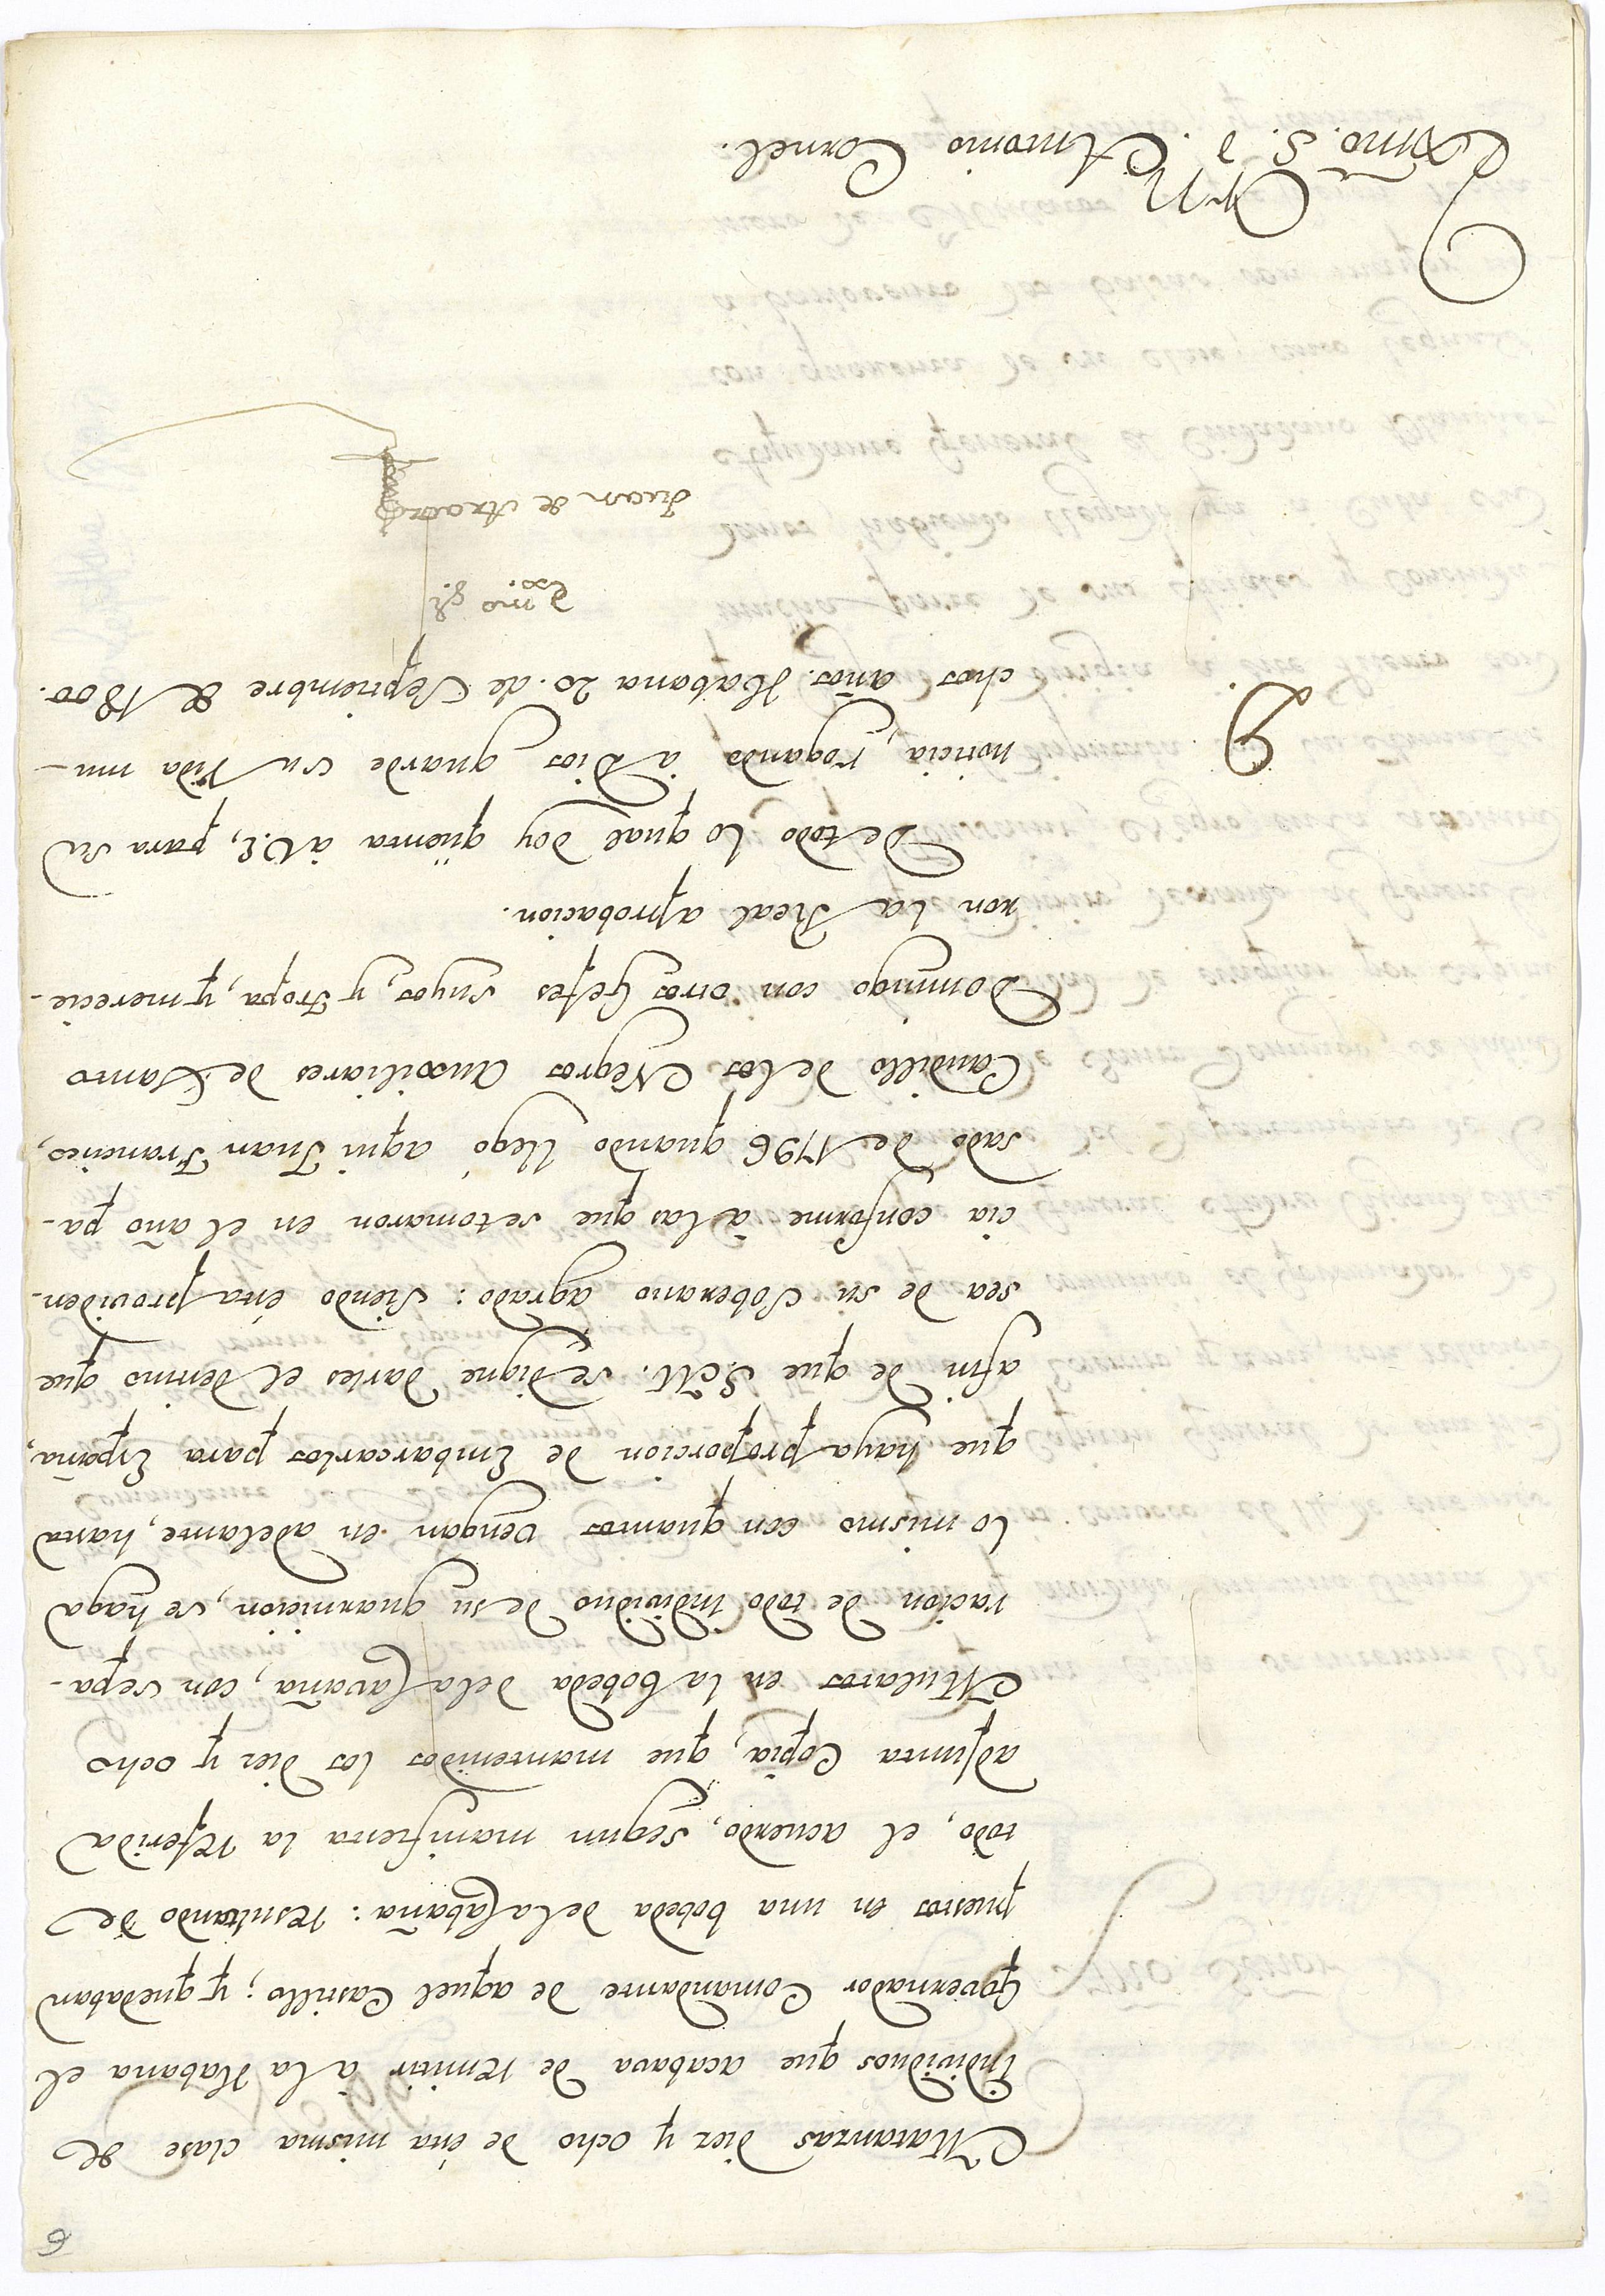 6
Matanzas diez y ocho de ésta misma clase de
Individuos que acabava de remitir à la Habana el
Governador Comandante de aquel Castillo; y quedaban
puestos en una bobeda de la Cabaña: resultando de
todo, el acuerdo, segun manifiesta la referida
adjunta Copia, que mantenidos los diez y ocho
Mulatos en la bobeda de la Cavaña, con sepa-
racion de todo Individuo de su guarnicion, se haga
lo mismo con quantos vengan en adelante, hasta
que haya proporcion de Embarcarlos para España,
afin de que S.M. se digne darles el destino que
sea de su Soberano agrado: siendo ésta providen-
cia conforme à las que se tomaron en el año pa-
sado de 1796 quando llegó aqui Juan Francisco,
Caudillo de los Negros Auxiliares de Santo
Domingo con otros Gefes suyos, y tropa, y merecie-
ron la Real aprobacion.
De todo lo qual doy qüenta à V.E. para su
noticia, rogando à Dios guarde su vida mu-
chos años. Habana 20. de Septiembre de 1800.
Exmo. Sr.
Juan de Araoz
Exmo. S. D. Antonio Cornel.